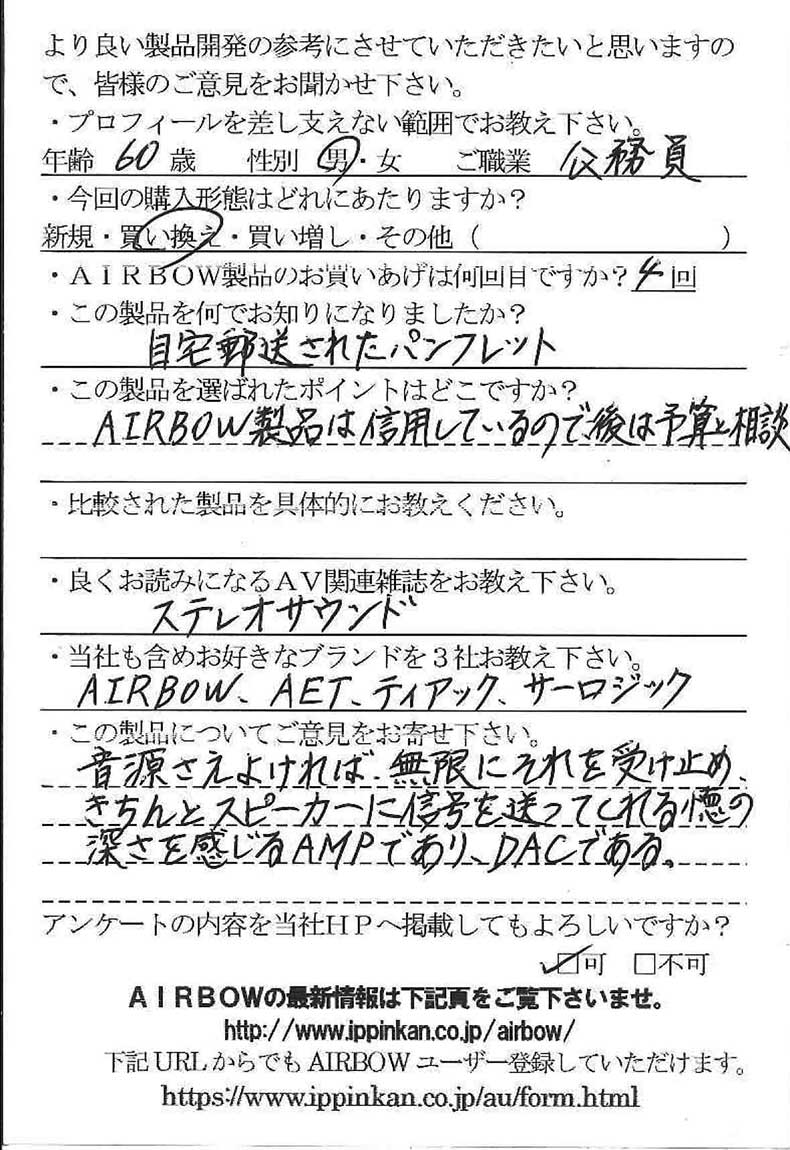 より良い製品開発の参考にさせていただきたいと思いますの
で、皆様のご意見をお聞かせ下さい。
・プロフィールを差し支えない範囲でお教え下さい。
年齢 60 歳 性別 男・女 ご職業 公務員
・今回の購入形態はどれにあたりますか?
新規・買い換え・買い増し・その他( )
・AIRBOW製品のお買いあげは何回目ですか?4回
・この製品を何でお知りになりましたか?
自宅郵送されたパンフレット
・この製品を選ばれたポイントはどこですか?
AIRBOW製品は信用しているので、後は予算と相談
・比較された製品を具体的にお教えください。
・良くお読みになるAV関連雑誌をお教え下さい。
ステレオサウンド
・当社も含めお好きなブランドを3社お教え下さい。
AIRBOW、AET、ティアック、サーロジック
・この製品についてご意見をお寄せ下さい。
音源さえよければ、無限にそれを受け止め、
きちんとスピーカーに信号を送ってくれる懐の
深さを感じるAMPであり、DACである。
アンケートの内容を当社HPへ掲載してもよろしいですか?
☑可 □不可
AIRBOWの最新情報は下記頁をご覧下さいませ。
http://www.ippinkan.co.jp/airbow/
下記URLからでもAIRBOWユーザー登録していただけます。
https://www.ippinkan.co.jp/au/form.html